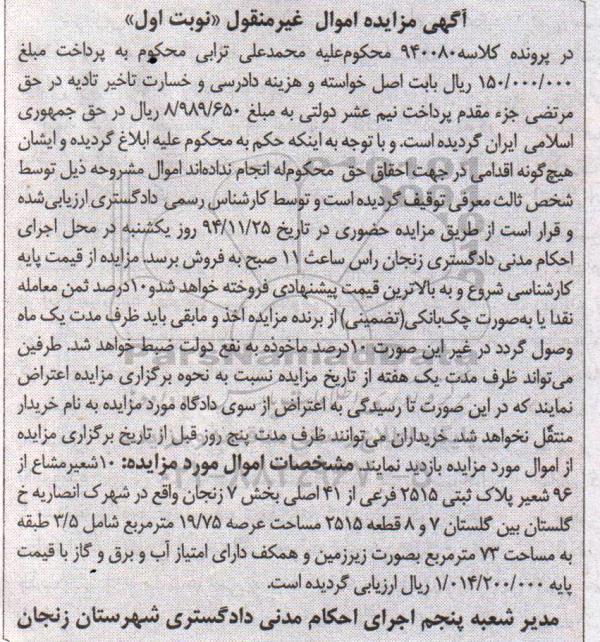 آگهی مزایده اموال غیرمنقول «نوبت اول»
در پرونده کلاسه ۹۴۰۰۸۰ محکوم‌علیه محمدعلی ترابی محکوم به پرداخت مبلغ
۱۵۰/۰۰۰/۰۰۰ ریال بابت اصل خواسته و هزینه دادرسی و خسارت تاخیر تادیه در حق
مرتضی جزء مقدم پرداخت نیم عشر دولتی به مبلغ ۸/۹۸۹/۶۵۰ ریال در حق جمهوری
اسلامی ایران گردیده است. و با توجه به اینکه حکم به محکوم علیه ابلاغ گردیده و ایشان
هیچ‌گونه اقدامی در جهت احقاق حق محکوم‌له انجام نداده‌اند اموال مشروحه ذیل توسط
شخص ثالث معرفی توقیف گردیده است و توسط کارشناس رسمی دادگستری ارزیابی‌شده
و قرار است از طریق مزایده حضوری در تاریخ ۹۴/۱۱/۲۵ روز یکشنبه در محل اجرای
احکام مدنی دادگستری زنجان راس ساعت ۱۱ صبح به فروش برسد. مزایده از قیمت پایه
کارشناسی شروع و به بالاترین قیمت پیشنهادی فروخته خواهد شدو۱۰درصد ثمن معامله
نقدا یا به‌صورت چک‌بانکی(تضمینی) از برنده مزایده اخذ و مابقی باید ظرف مدت یک ماه
وصول گردد در غیر این صورت ۱۰درصد ماخوذه به نفع دولت ضبط خواهد شد. طرفین
می‌تواند ظرف مدت یک هفته از تاریخ مزایده نسبت به نحوه برگزاری مزایده اعتراض
نمایند که در این صورت تا رسیدگی به اعتراض از سوی دادگاه مورد مزایده به نام خریدار
منتقل نخواهد شد. خریداران می‌توانند ظرف مدت پنج روز قبل از تاریخ برگزاری مزایده
از اموال مورد مزایده بازدید نمایند. مشخصات اموال مورد مزایده: ۱۰شعیرمشاع از
۹۶ شعیر پلاک ثبتی ۲۵۱۵ فرعی از ۴۱ اصلی بخش ۷ زنجان واقع در شهرک انصاریه خ
گلستان بین گلستان ۷ و ۸ قطعه ۲۵۱۵ مساحت عرصه ۱۹/۷۵ مترمربع شامل ۳/۵ طبقه
به مساحت ۷۳ مترمربع بصورت زیرزمین و همکف دارای امتیاز آب و برق و گاز با قیمت
پایه ۱/۰۱۴/۲۰۰/۰۰۰ ریال ارزیابی گردیده است.
مدیر شعبه پنجم اجرای احکام مدنی دادگستری شهرستان زنجان
ParsNamadData